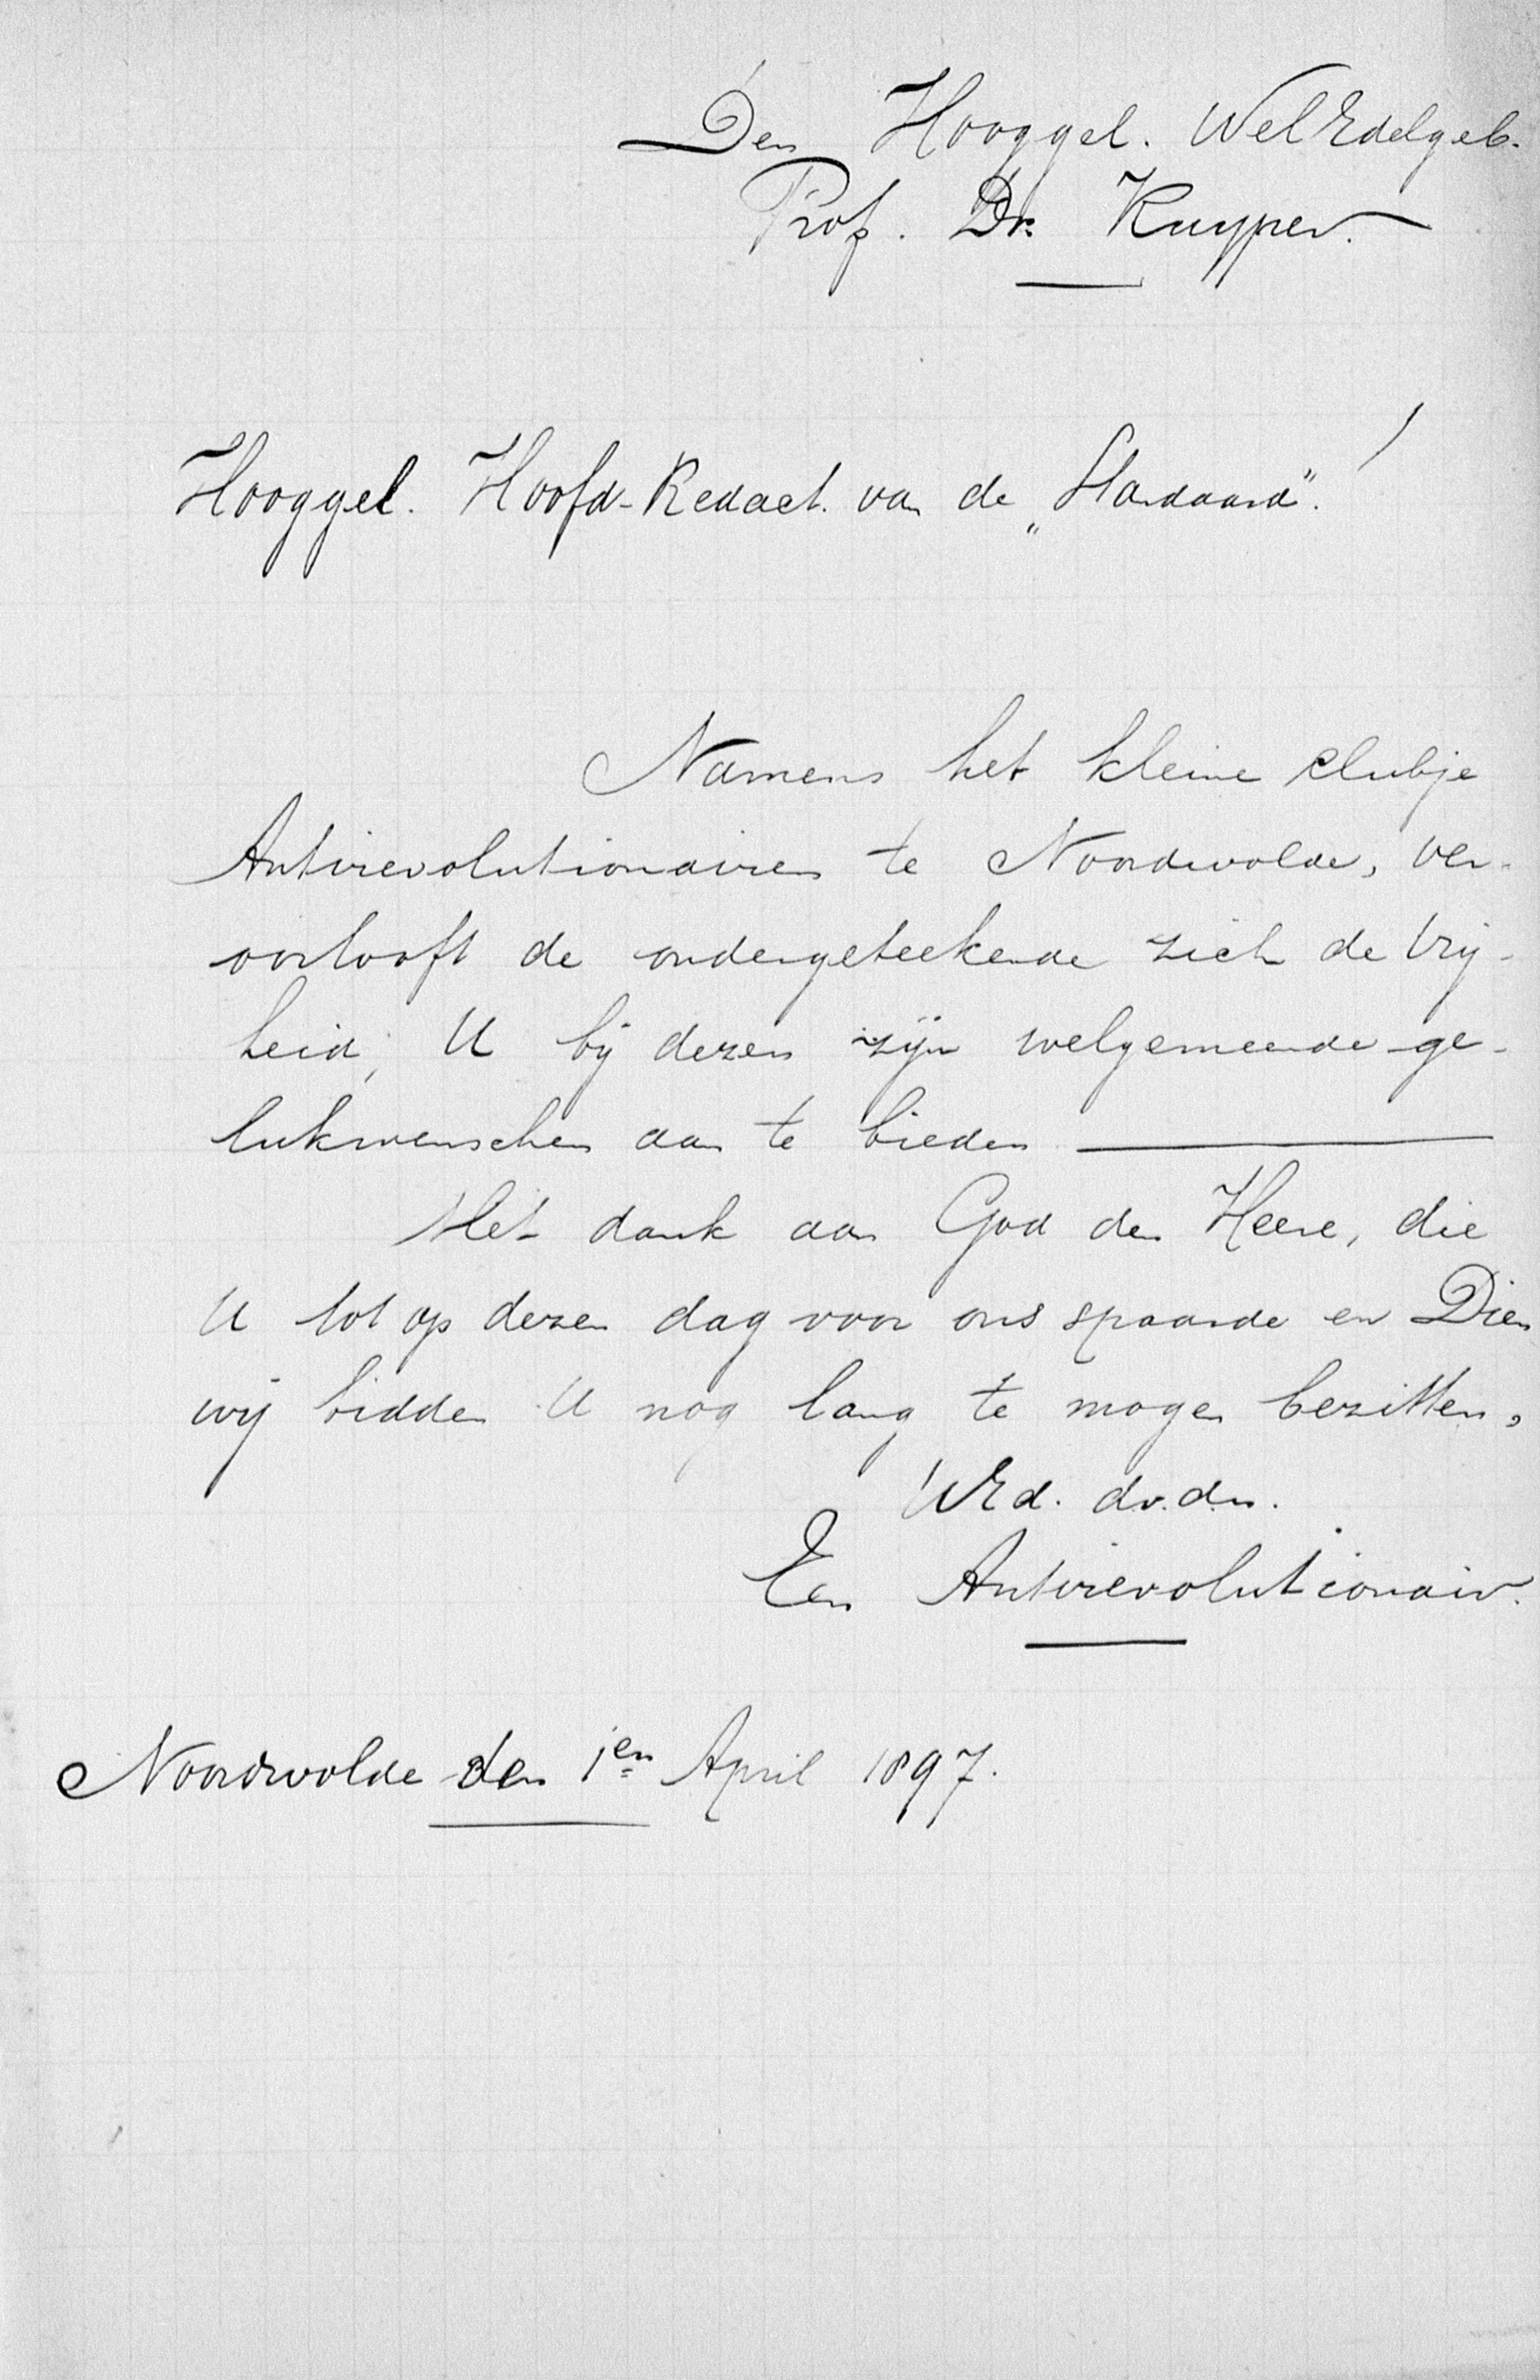 Den Hooggel. WelEdelgeb.
Prof. Dr. Kuyper.
Hooggel. Hoofd-Redact. van de „Standaard”!
Namens het kleine clubje
Antirevolutionairen te Noordwolde, ver-
oorlooft de ondergeteekende zich de vrij-
heid, U bij dezen zijn welgemeende ge-
lukwenschen aan te bieden
Met dank aan God den Heere, die
U tot op dezen dag voor ons spaarde en Dien
wij bidden U nog lang te mogen bezitten,
UEd. dv. dn.
Een Antirevolutionair.
Noordwolde den 1en April 1897.